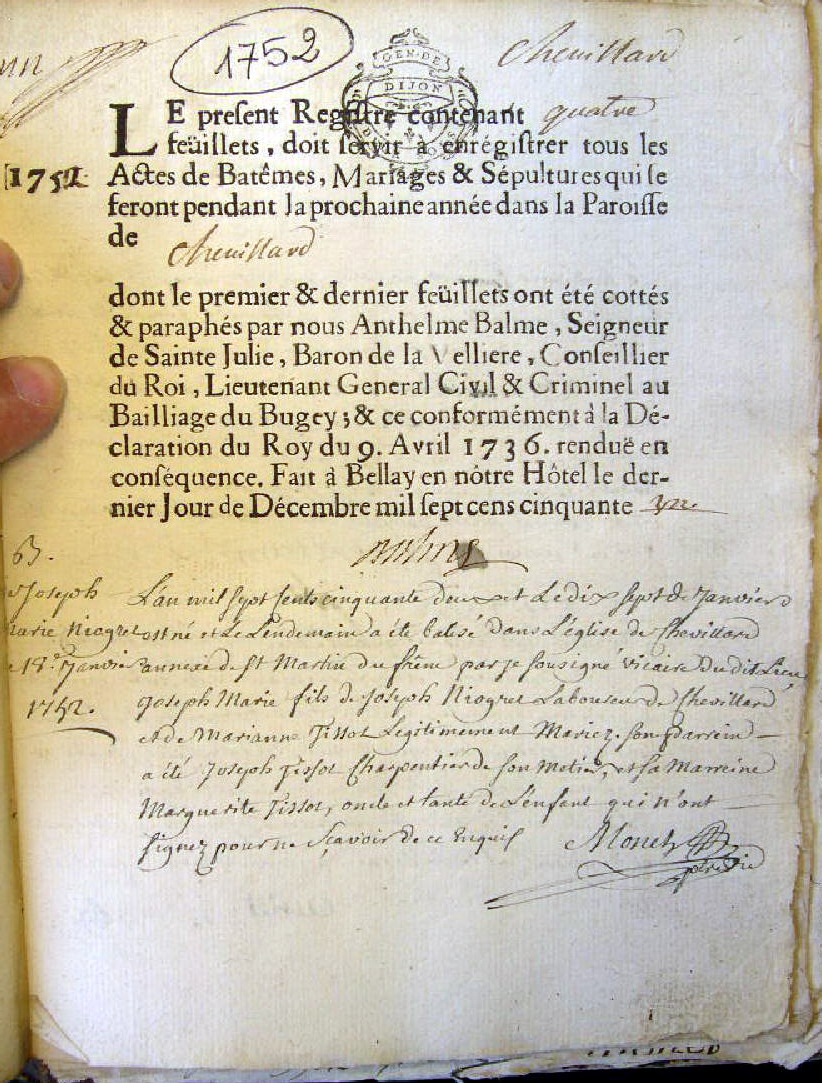 1752
Chevillard
GEN. DE
DIJON
LE preſent Regiſtre contenant quatre
feüillets, doit ſervir à enrégiſtrer tous les
[1752
Actes de Batêmes, Mariages & Sépultures qui ſe
feront pendant la prochaine année dans la Paroiſſe
de Chevillard
dont le premier & dernier feüillets ont été cottés
& paraphés par nous Anthelme Balme, Seigneur
de Sainte Julie, Baron de la Velliere, Conſeillier
du Roi, Lieutenant General Civil & Criminel au
Bailliage du Bugey; & ce conformément à la Dé-
claration du Roy du 9. Avril 1736. renduë en
conſéquence. Fait à Bellay en nôtre Hôtel le der-
nier Jour de Décembre mil ſept cens cinquante un.
B.
Joseph
marie Niogret
18e Janvier
1752.
L'an mil sept cents cinquante deux et Le dix sept de Janvier
est né et Le Lendemain a été batisé dans L'église de Chevillard
annexe de St Martin du frêne par je sousigné vicaire du dit Lieu
Joseph Marie fils de Joseph Niogret Laboureur de Chevillard
et de Marianne Tissot Legitimement Mariez. son Parrein
a été Joseph Tissot Charpentier de son metier, et sa Marreine
Marguerite Tissot, oncle et tante de L'enfant qui n'ont
signez pour ne sçavoir de ce Enquis Monet